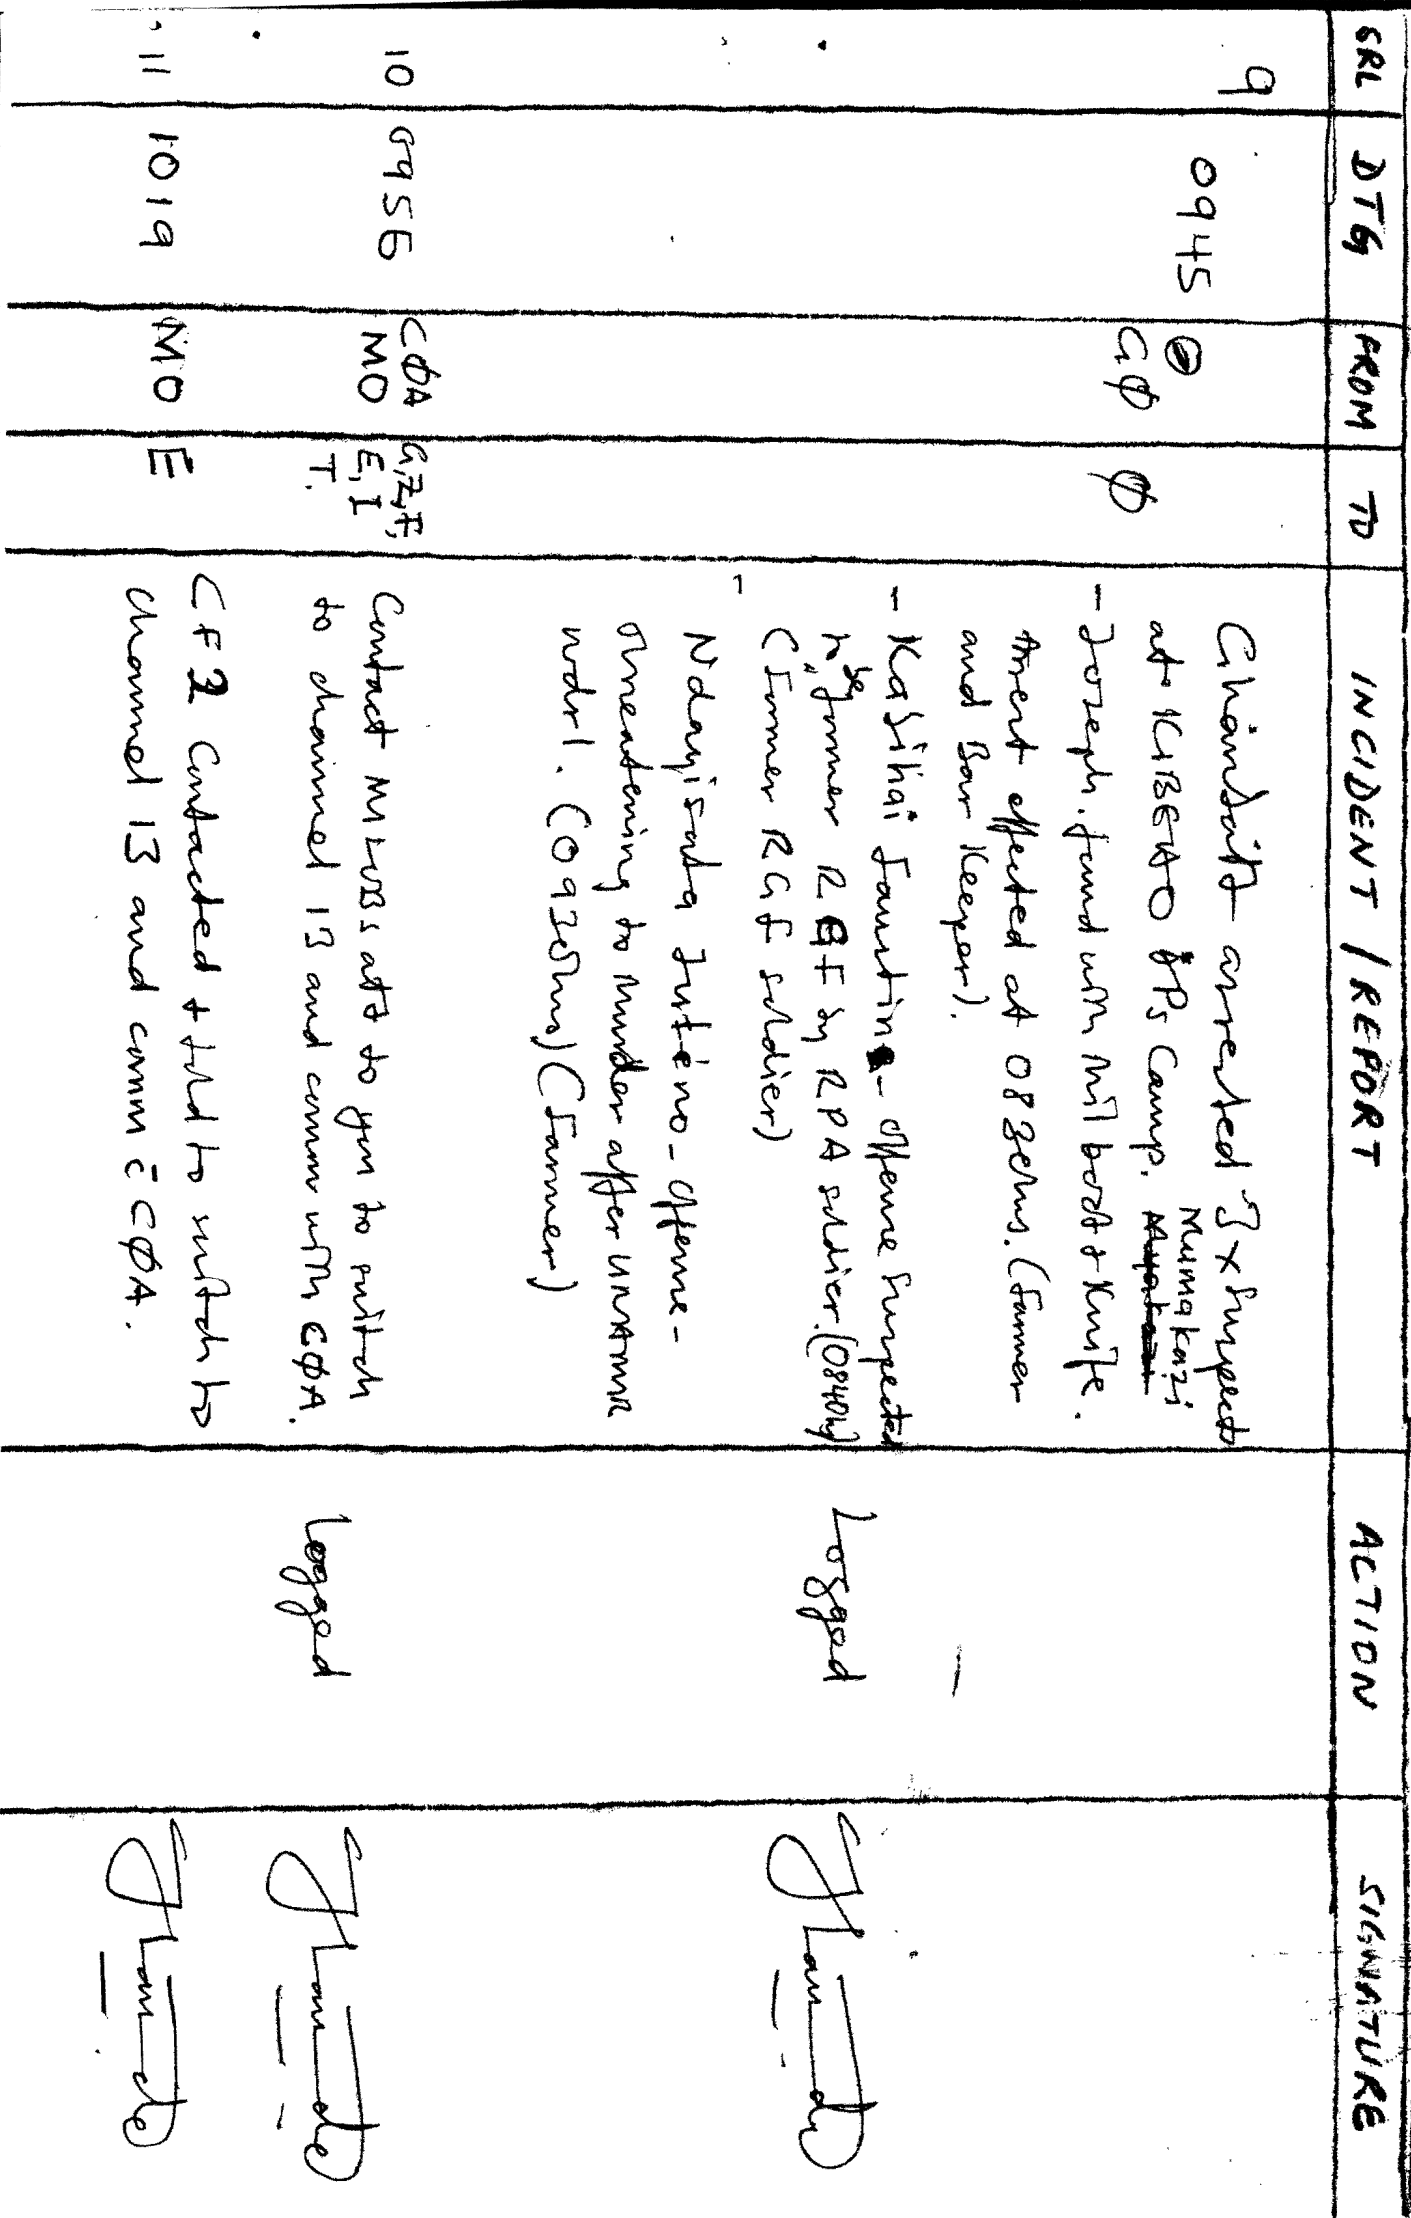 SRL DTG FROM TO INCIDENT / REPORT ACTION SIGNATURE
9 0945 GØ Ø Ghanbatt arrested 3 x suspects
at KIBEHO DPs Camp. Mumakazi
- Joseph. found with mil boot + Knife.
Arrest effected at 0830hrs. (farmer
and Bar Keeper).
- Kasihai faustin - offence suspected
to be former RGF by RPA soldier. (0840hrs)
(former RGF soldier) Logged
- Ndayisata - offence -
threatening to murder after UNAMIR
wdrl. (0930hrs) (farmer)
10 0956 CØA MO G, Z, F, E, I T. Contact MILOBs att to you to switch
to channel 13 and comm with CØA. Logged
11 1019 MO E CF2 Contacted + told to switch to
channel 13 and comm c̄ CØA.